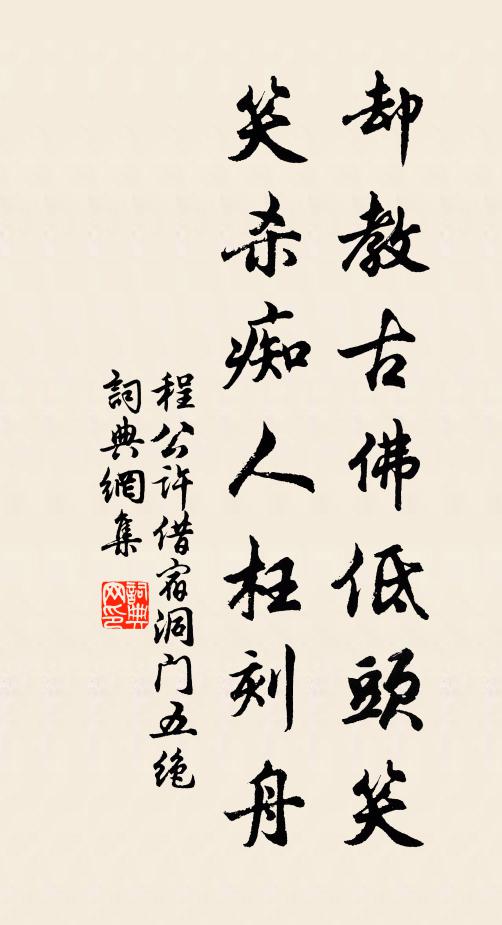 却教古佛低頭笑
笑杀痴人枉刻舟
程公许借宿洞门五绝
詞典網集
詞典网印